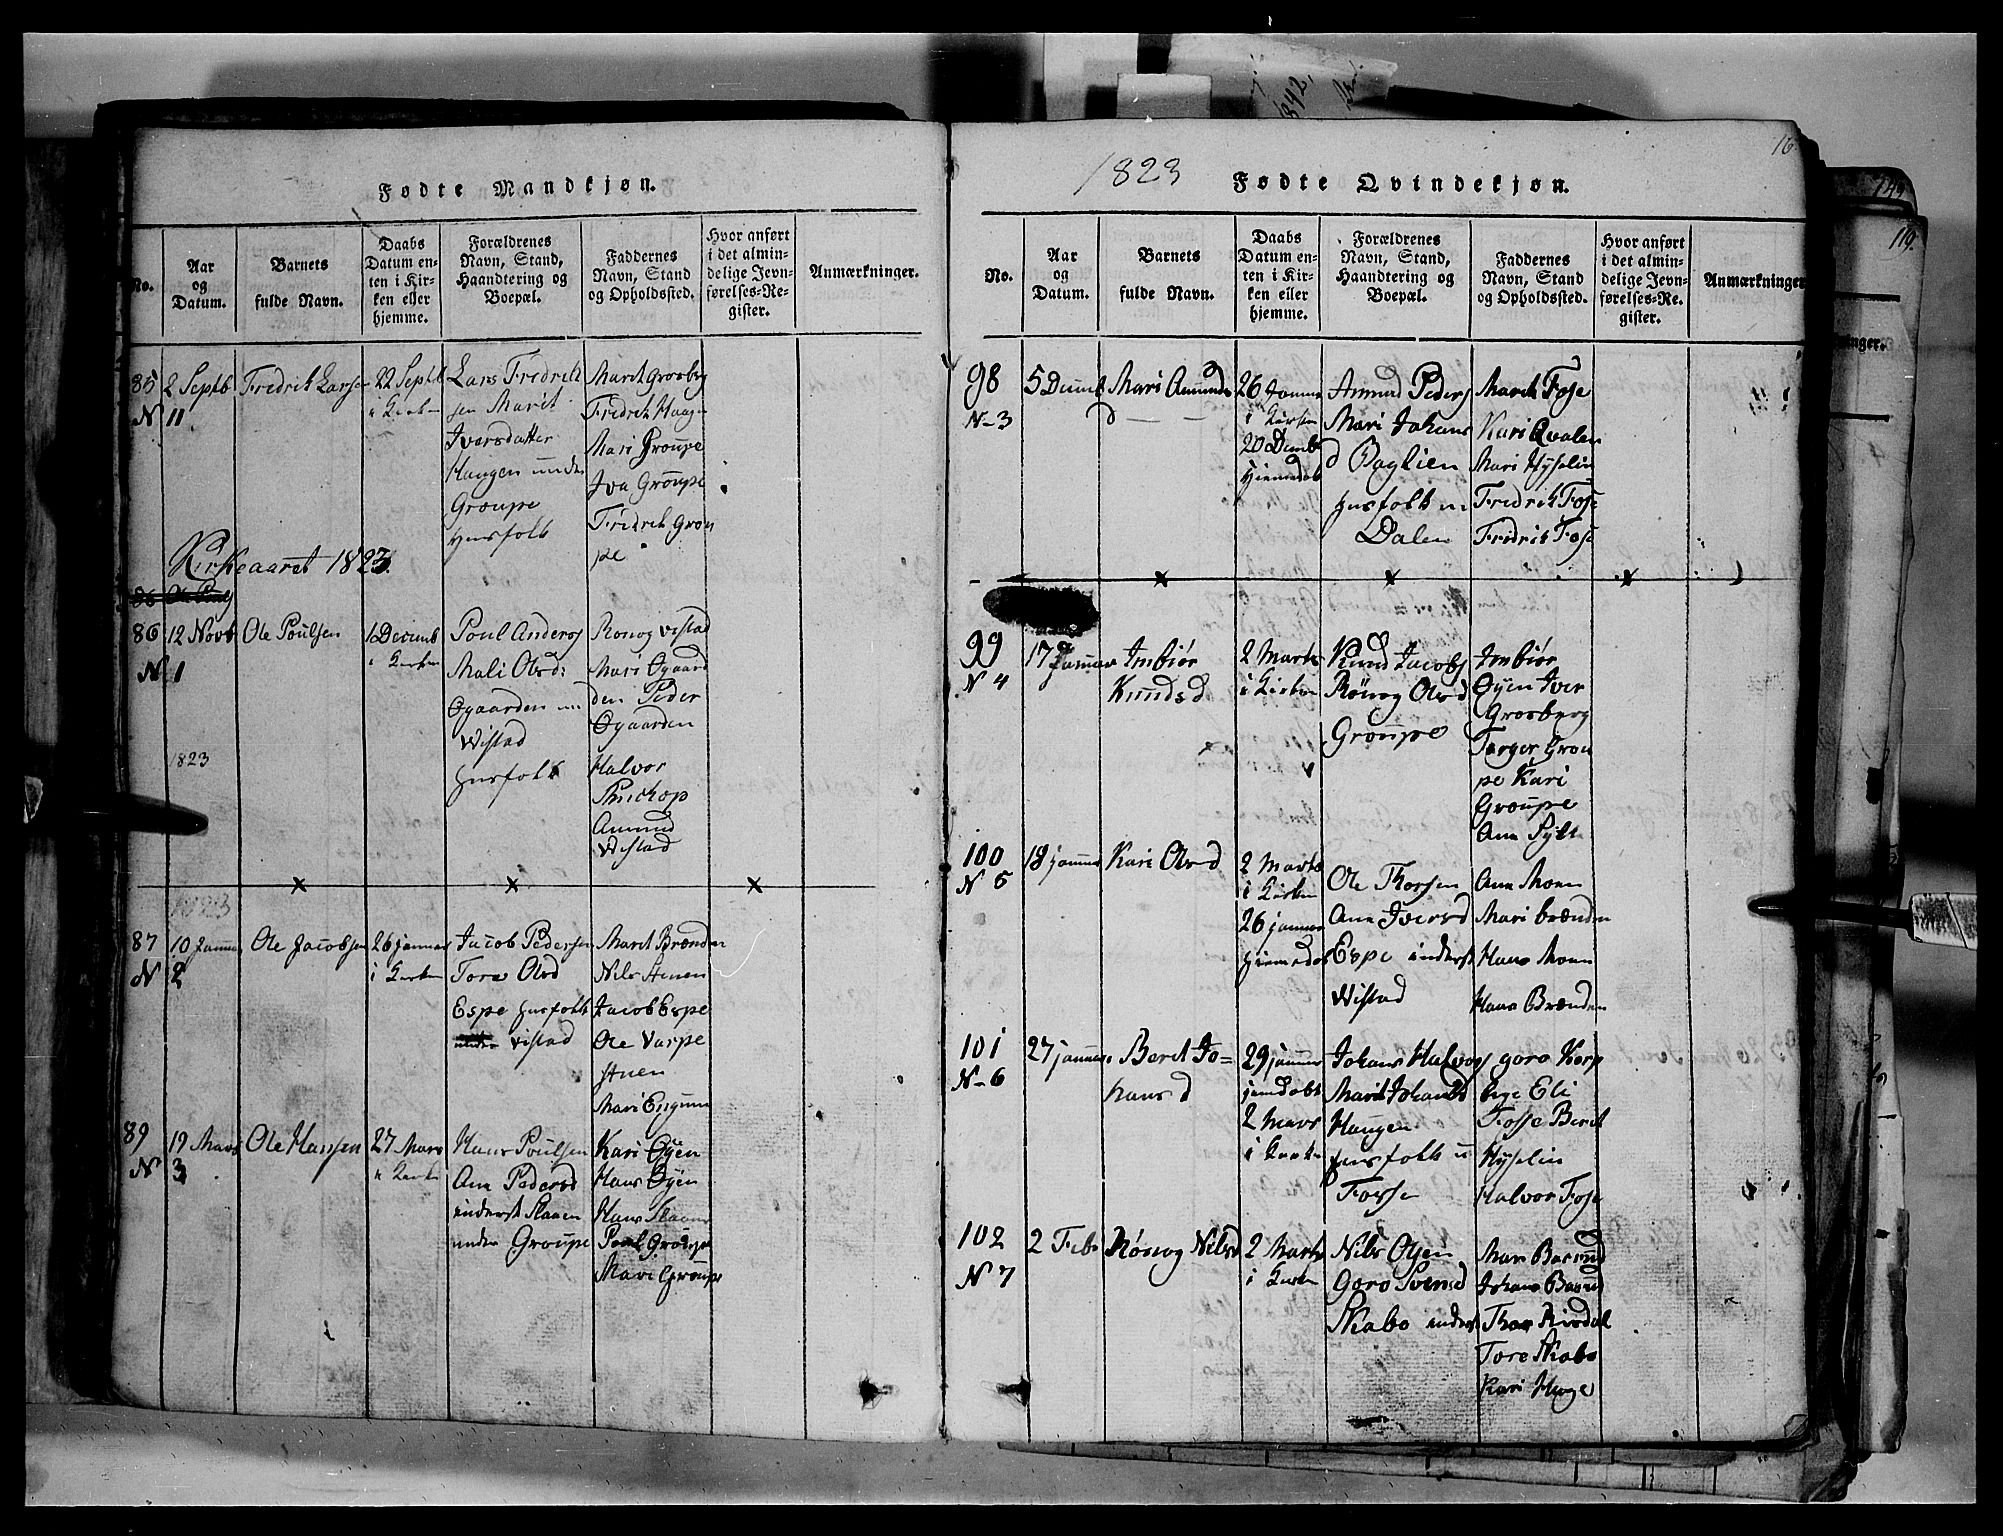 Fødte Mandkjøn.
No.
Aar
og
Datum.
Barnets
fulde Navn.
Daabs
Datum en-
ten i Kir-
ken eller
hjemme.
Forældrenes
Navn, Stand,
Haandtering og
Boepæl.
Faddernes
Navn, Stand
og Opholdssted.
Hvor anført
i det almin-
delige Jevn-
førelses-Re-
gister.
Anmærkninger.
85
N 11
2 Septb
Fredrik Larsen
22 Septb
i Kirken
Lars Fredrik
sen Marit
Iversdatter
Haugen under
Groupe
Husfolk
Marit Grosberg
Fredrik Haagen
Mari Groupe
Iva Groupe
Fredrik Grou
pe
Kirkeaaret 1823
86 Ole Poulsen
86
N 1
12 Novb
Ole Poulsen
1 Decemb
i Kirken
Poul Anders
Mali Olsd:
Øgaarden
Wistad
Husfolk
Ronog Vistad
Mari Øgaard
den Peder
Øgaarden
Halvor
Amund
Wistad
1823
1823
87
N 2
10 Januar
Ole Jacobsen
26 januar
i Kirken
Jacob Pedersen
Tore Olsd
Espe Husfolk
under Vistad
Marit Brænden
Nils Stuen
Jacob Espe
Ole Varpe
Stuen
Mari Engum
89
N 3
19 Mars
Ole Hansen
27 Mars
i Kirken
Hans Poulsen
Ane Pedersd
inderst Slaaen
under Groupe
Kari Øyen
Hans Øyen
Hans Slaaen
Poul Groupe
Mari Groupe
1823
Fødte Qvindekjøn.
16
No.
Aar
og
Datum.
Barnets
fulde Navn.
Daabs
Datum en-
ten i Kir-
ken eller
hjemme.
Forældrenes
Navn, Stand,
Haandtering og
Boepæl.
Faddernes
Navn, Stand
og Opholdssted.
Hvor anført
i det almin-
delige Jevn-
førelses-Re-
gister.
Anmærkninger
98
N-3
5 Decemb
Mari Amunds
d
26 Januar
i Kirken
20 Decemb
Hiemedøb
Amund Peders
Mari Johans
d Baglien
Husfolk u
Dalen
Marit Fosse
Kari Qvalen
Mari Hyselin
Fredrik Fosse
Fredrik Fosse
99
N 4
17 Januar
Imbiør
Knudsd
2 Marts
i Kirken
Knud Jacobs
Rönog Olsd
Groupe
Imbiør
Øyen Iver
Grosberg
Torger Grou
pe Kari
Groupe
Ane Sylte
100
N 5
18 januar
Kari Olsd
2 Marts
i Kirken
26 januar
Hiemedøb
Ole Thorsen
Ane Iversd
Espe inderst
Wistad
Ane Moen
Mari brænden
Hans Moen
Hans Brænden
101
N-6
27 januar
Berit Jo=
hansd
29 januar
jemdøbt
2 Mars
i Kirken
Johans Halvors
Marit Johansd
Haugen
Husfolk u
Forsse
goro Korp
berge Eli
Fosse Berit
Hyselin
Halvor Fosse
102
N 7
2 Feb
Rönnog Nilsd
2 Marts
i Kirken
Nils Olsen
Goro Svensd
Skabo inderst
Johans
Thor Risdal
Tore Skabo
Kari Hage
1842.
149
119.
ninger.